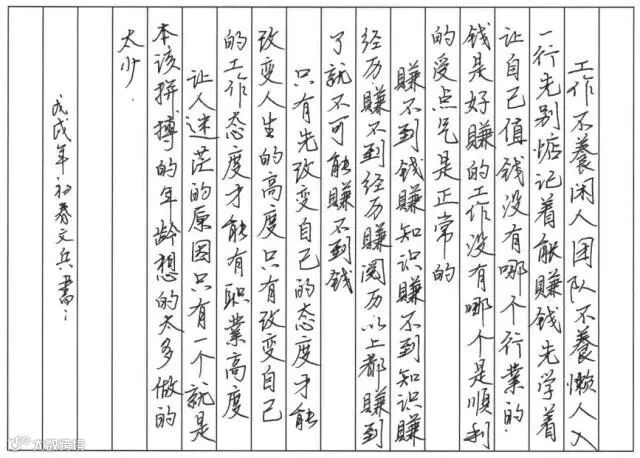 工作不養闲人团队不養懒人入
一行先别惦记着能賺钱先学着
让自己值钱没有哪个行業的
钱是好賺的工作没有哪个是順利
的受点气是正常的
賺不到钱賺知识賺不到知识賺
经历賺不到经历賺阅历以上都賺到
了就不可能賺不到钱
只有先改变自己的态度才能
改变人生的高度只有改变自己
的工作态度才能有职業高度
让人迷茫的原因只有一个就是
本该拼搏的年龄想的太多做的
太少.
戊戌年初春文兵書
大数跨境